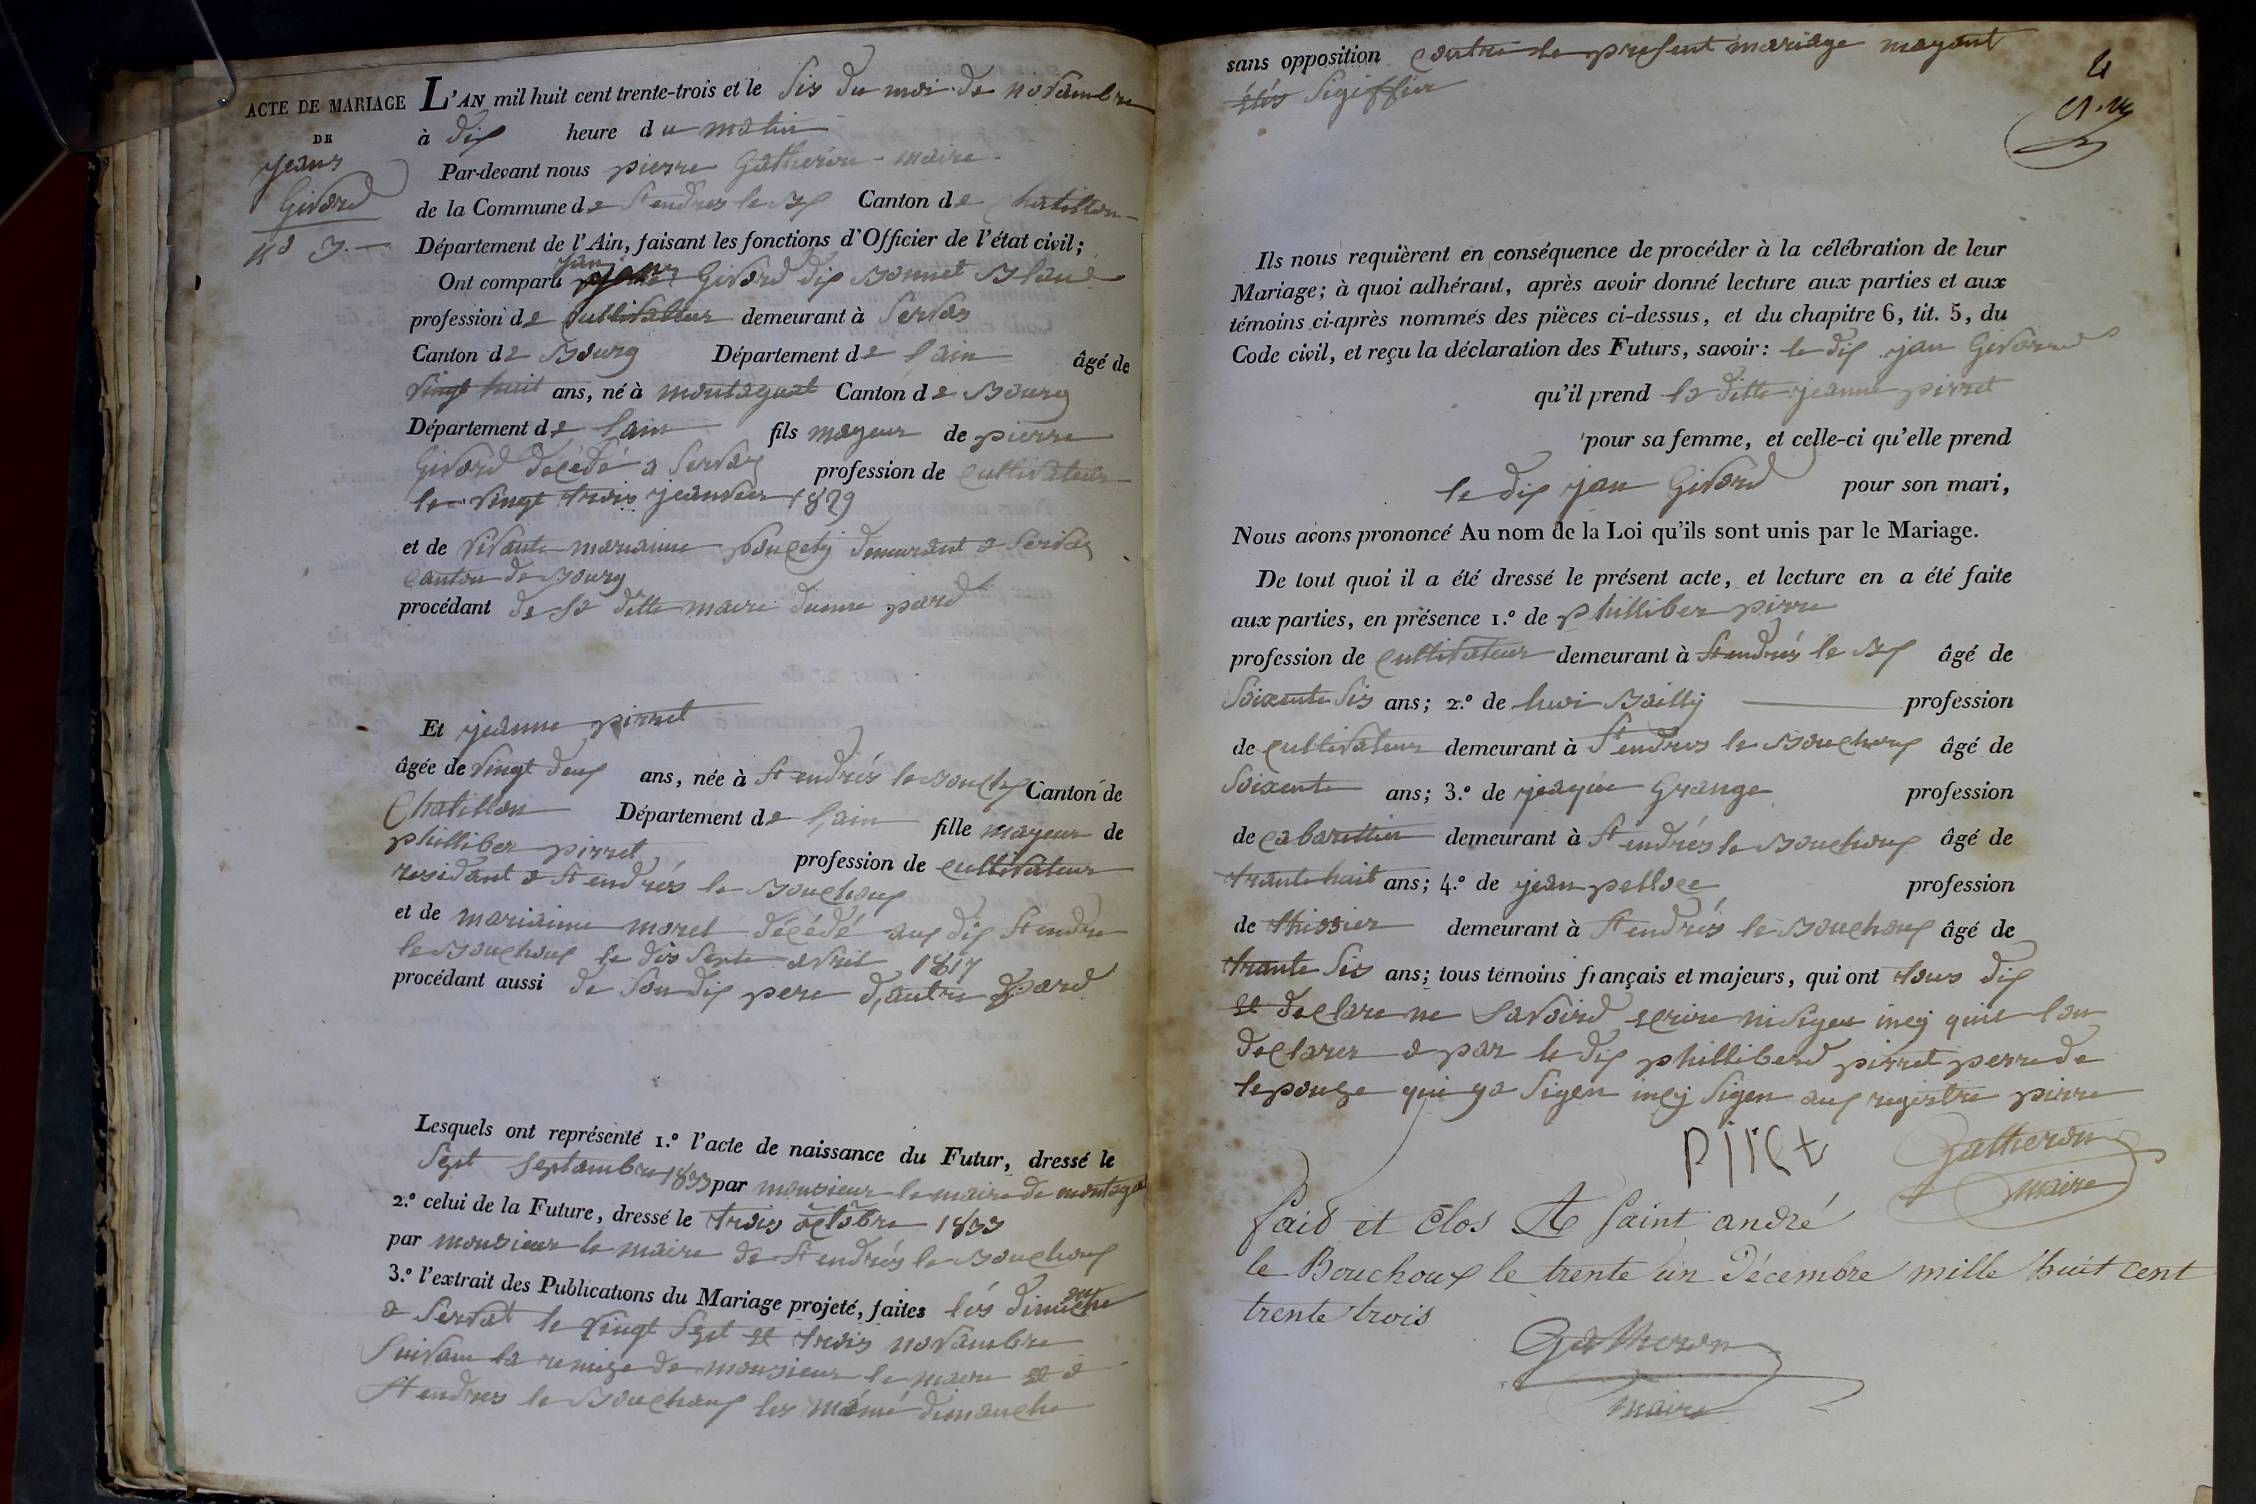 ACTE DE MARIAGE
DE
jeans
Givord
N° 3.
L'AN mil huit cent trente-trois et le sis du moi de novambre
à dix heure du matin
Par-devant nous pierre Gatheron maire
de la Commune de St endres le Bx Canton de Chatillon
Département de l'Ain, faisant les fonctions d'Officier de l'état civil;
Ont comparu jan Givord dix Bonnet Blanc
profession de cultivateur demeurant à Servas
Canton de Bourg Département de lain âgé de
vingt huit ans, né à montagnat Canton de Bourg
Département de lain fils mayeur de pierre
Givord décédé a Servas profession de cultivateur
le vingt trois jeanvier 1829
et de vivante marianne poncety demeurant a Servas
canton de Bourg
procédant de sa ditte maire dunne pard
Et jeanne pirret
âgée de vingt deux ans, née à St endrés le Bouchx Canton de
Chatillon Département de lain fille mayeur de
philliber pirret profession de cultivateur
residant a St endrés le Bouchoux
et de marianne morel décédé aux dix St endre
le Bouchoux le dis sept avril 1817
procédant aussi de son dix pere d,autre pard
Lesquels ont représenté 1.° l'acte de naissance du Futur, dressé le
sept septambre 1833 par monsieur le maire de montag
2.° celui de la Future, dressé le trois octobre 1833
par monsieur le maire de St endrés le Bouchoux
3.° l'extrait des Publications du Mariage projeté, faites lés dimanche
a Servat le vingt sept et trois novambre
suivam la remize de monsieur le maire et a
St endres le Bouchoux les mémé dimanche
sans opposition contre le present mariage nayant
étés sigiffier
4
Ils nous requièrent en conséquence de procéder à la célébration de leur
Mariage; à quoi adhérant, après avoir donné lecture aux parties et aux
témoins ci-après nommés des pièces ci-dessus, et du chapitre 6, tit. 5, du
Code civil, et reçu la déclaration des Futurs, savoir: le dix jan Givord
qu'il prend la ditte jeanne pirret
pour sa femme, et celle-ci qu'elle prend
le dix jan Givord pour son mari,
Nous avons prononcé Au nom de la Loi qu'ils sont unis par le Mariage.
De tout quoi il a été dressé le présent acte, et lecture en a été faite
aux parties, en présence 1.° de philliber pirre
profession de cultivateur demeurant à St endrés le Bx âgé de
soixente sis ans; 2.° de lwi Bailly profession
de cultivateur demeurant à St endres le Bouchoux âgé de
soixente ans; 3.° de Grange profession
de cabarettier demeurant à St endrés le Bouchoux âgé de
trante hait ans; 4.° de jean pelloce profession
de thissier demeurant à St endrés le Bouchoux âgé de
trante sis ans; tous témoins français et majeurs, qui ont tous dix
et declare ne savoird ecrire ni sigen incy quil lon
declarer a par le dix philliberd pirret perre de
lepouze qui ya sigen incy sigen aux registre pirre
piret
Gatheron
maire
fait et clos A saint andré
le Bouchoux le trente un décembre mille huit cent
trente trois
Gatheron
maire